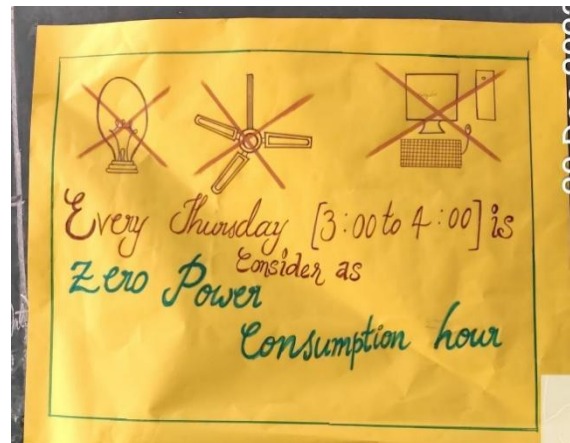 Every Thursday [3:00 to 4:00] is
Consider as
Zero Power
Consumption hour